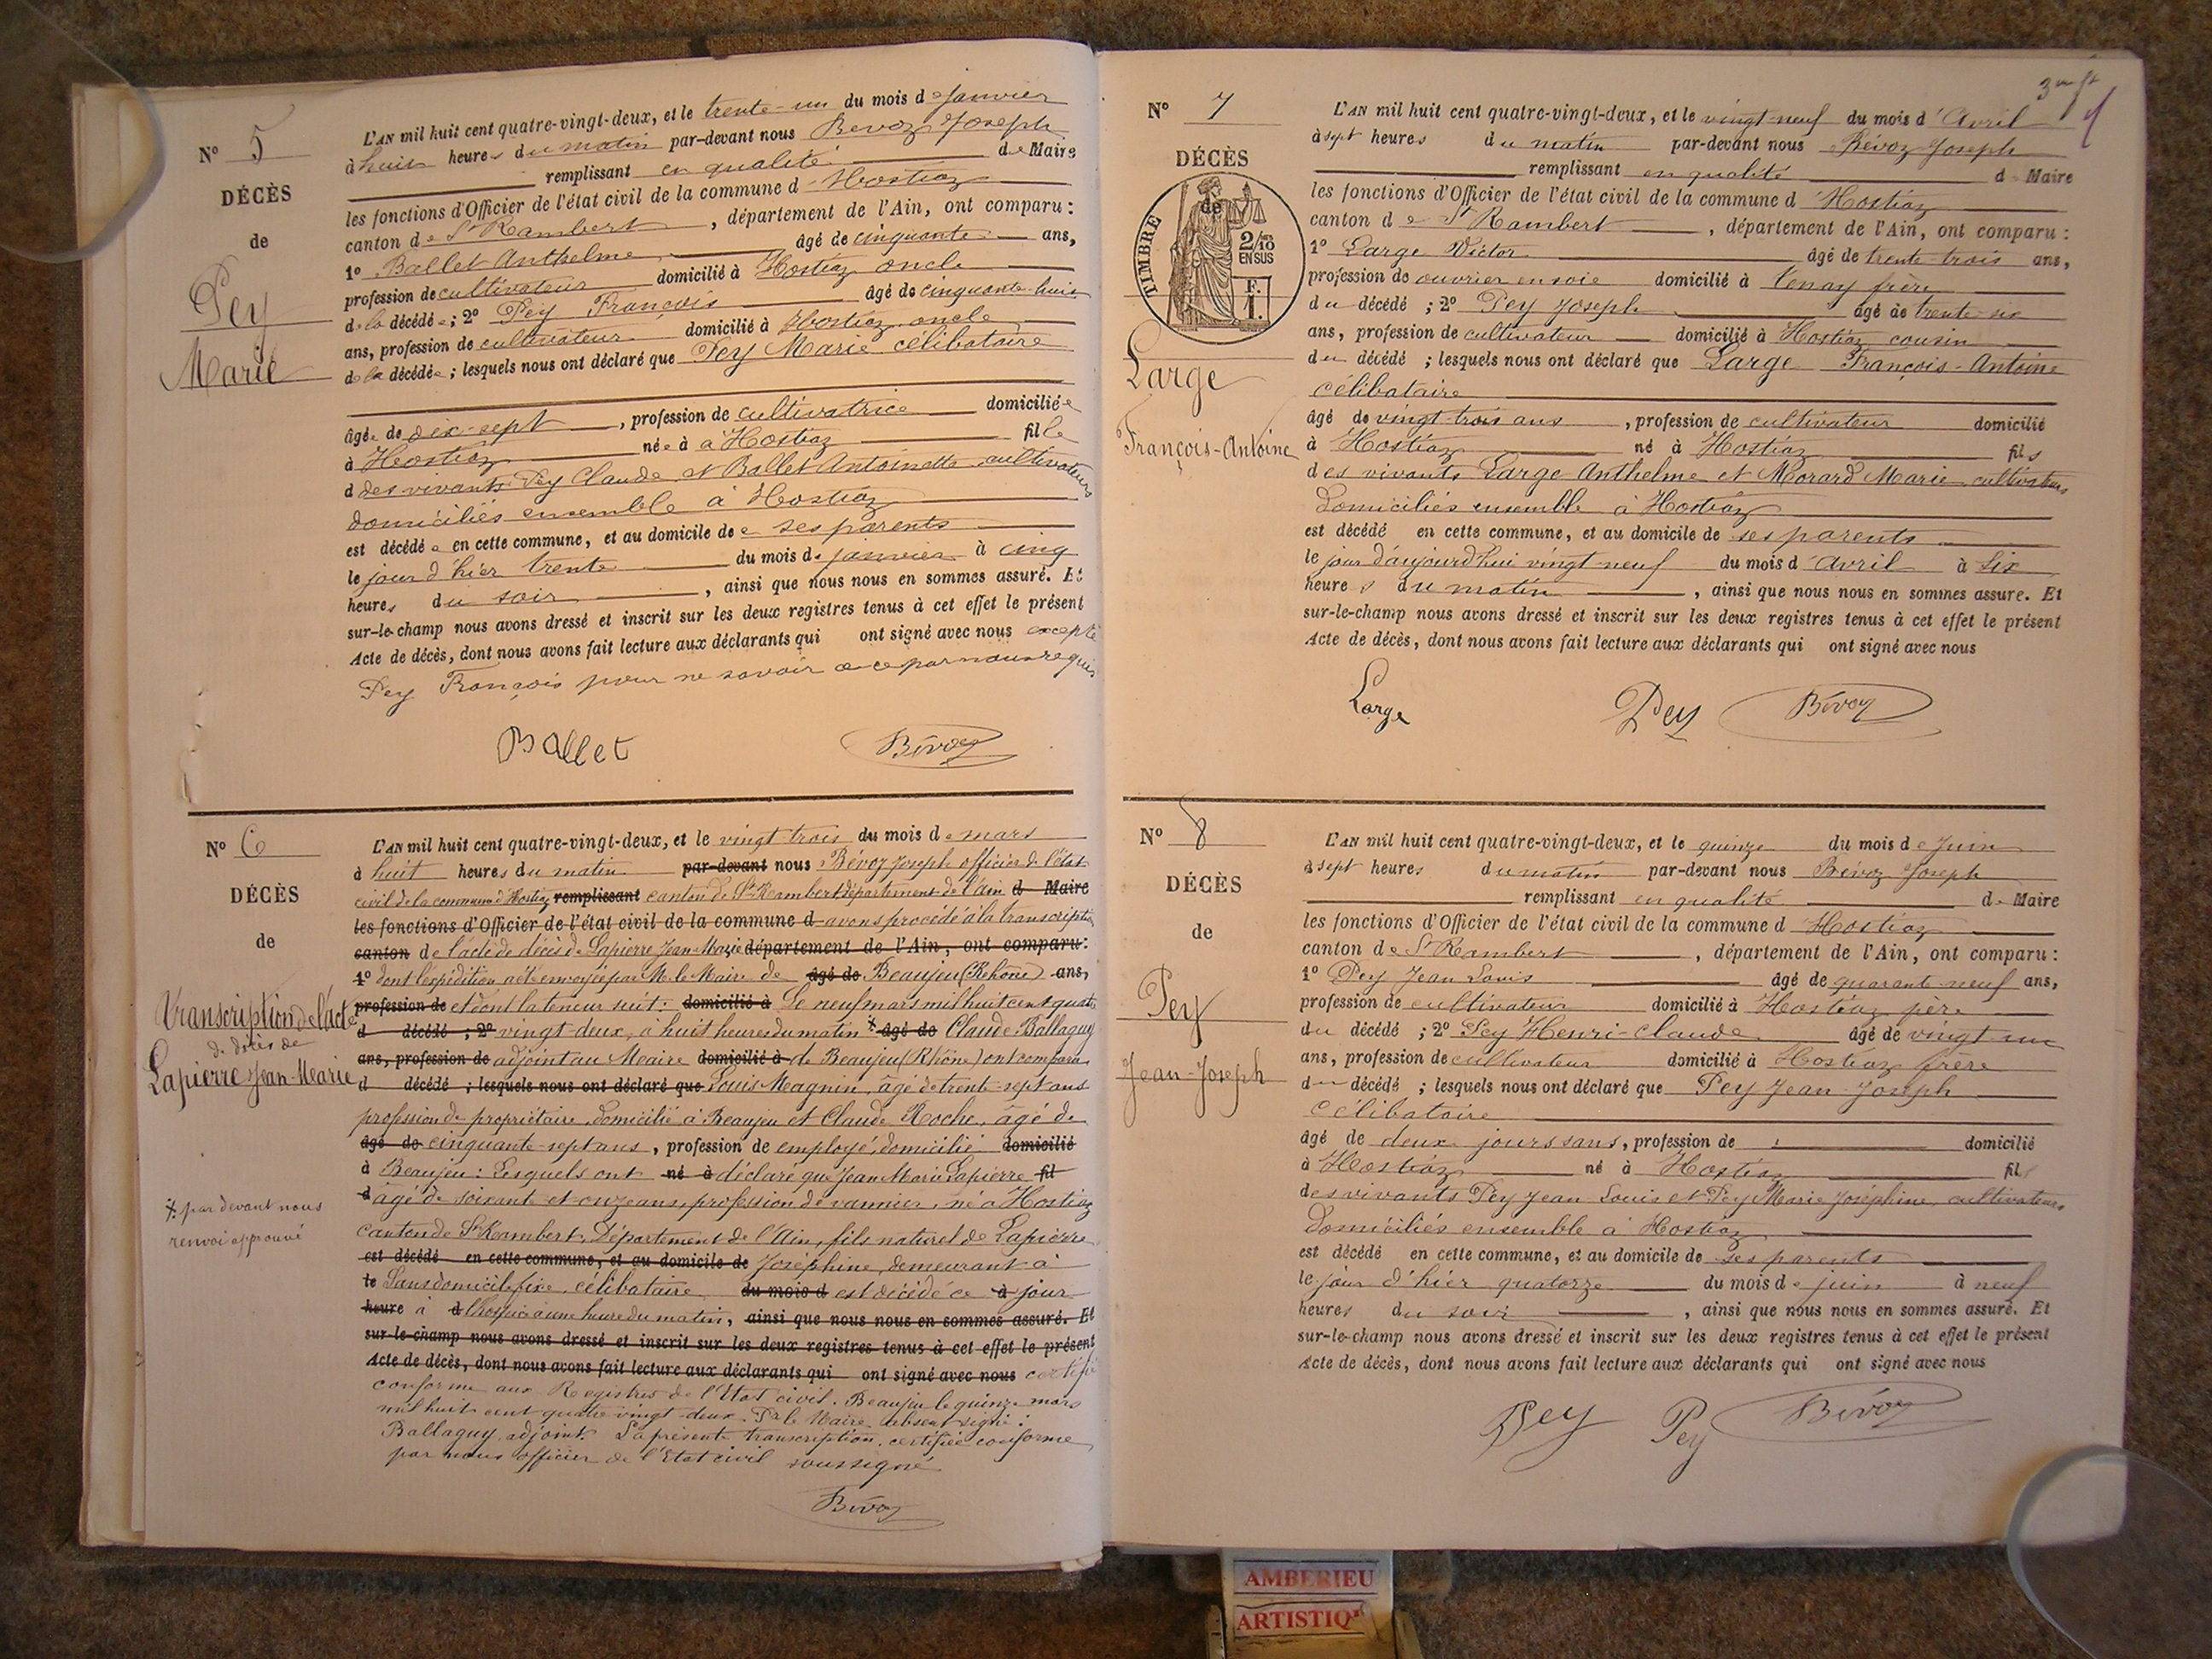 N° 5
DÉCÈS
de
Pey
Marie
L'AN mil huit cent quatre-vingt-deux, et le trente-un du mois de Janvier
à huit heures du matin par-devant nous Bévoz Joseph
remplissant en qualité de Maire
les fonctions d'Officier de l'état civil de la commune d'Hostiaz
canton de St Rambert, département de l'Ain, ont comparu :
1° Ballet Anthelme âgé de cinquante ans,
profession de cultivateur domicilié à Hostiaz oncle
de la décédée ; 2° Pey François âgé de cinquante-huit
ans, profession de cultivateur domicilié à Hostiaz oncle
de la décédée ; lesquels nous ont déclaré que Pey Marie célibataire
âgée de dix-sept, profession de cultivatrice domiciliée
à Hostiaz née à à Hostiaz fille
d des vivants Pey Claude et Ballet Antoinette cultivateurs
domiciliés ensemble à Hostiaz
est décédée en cette commune, et au domicile de ses parents
le jour d'hier trente du mois de janvier à cinq
heures du soir, ainsi que nous nous en sommes assuré. Et
sur-le-champ nous avons dressé et inscrit sur les deux registres tenus à cet effet le présent
Acte de décès, dont nous avons fait lecture aux déclarants qui ont signé avec nous excepté
Pey François pour ne savoir à ce par nous requis
Ballet Bévoz
N° 6
DÉCÈS
de
Transcription de l'acte
de décès de
Lapierre Jean-Marie
x par devant nous
renvoi approuvé
L'AN mil huit cent quatre-vingt-deux, et le vingt trois du mois de mars
à huit heures du matin par-devant nous Bévoz Joseph officier de l'état
civil de la commune d'Hostiaz remplissant canton de St Rambert département de l'Ain d Maire
les fonctions d'Officier de l'état civil de la commune d avons procédé à la transcription
canton de l'acte de décès de Lapierre Jean-Marie département de l'Ain, ont comparu :
1° dont l'expédition a été envoyée par M. le Maire de âgé de Beaujeu (Rhône) ans,
profession de et dont la teneur suit : domicilié à Le neuf mars mil huit cent quatre
d décédé ; 2° vingt deux, à huit heures du matin x âgé de Claude Ballaguy
ans, profession de adjoint au Maire domicilié à de Beaujeu (Rhône) ont comparu
d décédé ; lesquels nous ont déclaré que Louis Magnin, âgé de trente-sept ans
profession de propriétaire, domicilié à Beaujeu et Claude Roche, âgé de
âgé de cinquante-sept ans, profession de employé, domicilié domicilié
à Beaujeu : Lesquels ont né à déclaré que Jean Marie Lapierre fil
d âgé de soixante et onze ans, profession de vannier, né à Hostiaz
canton de St Rambert, Département de l'Ain, fils naturel de Lapierre
est décédé en cette commune, et au domicile de Joséphine, demeurant à
le Sans domicile fixe, célibataire du mois d est décédé ce à jour
heure à d l'hospice à une heure du matin, ainsi que nous nous en sommes assuré. Et
sur-le-champ nous avons dressé et inscrit sur les deux registres tenus à cet effet le présent
Acte de décès, dont nous avons fait lecture aux déclarants qui ont signé avec nous certifié
conforme aux Registres de l'Etat civil. Beaujeu le quinze mars
mil huit cent quatre vingt deux. Pr le Maire absent signé :
Ballaguy, adjoint. La présente transcription certifiée conforme
par nous officier de l'Etat civil soussigné
Bévoz
N° 7
DÉCÈS
de
TIMBRE
2/10
EN SUS
F.
1.
Large
François-Antoine
L'AN mil huit cent quatre-vingt-deux, et le vingt-neuf du mois d'Avril
à sept heures du matin par-devant nous Bévoz Joseph
remplissant en qualité de Maire
les fonctions d'Officier de l'état civil de la commune d'Hostiaz
canton de St Rambert, département de l'Ain, ont comparu :
1° Large Victor âgé de trente-trois ans,
profession de ouvrier en soie domicilié à Tenay frère
du décédé ; 2° Pey Joseph âgé de trente-six
ans, profession de cultivateur domicilié à Hostiaz cousin
du décédé ; lesquels nous ont déclaré que Large François-Antoine
célibataire
âgé de vingt-trois ans, profession de cultivateur domicilié
à Hostiaz né à Hostiaz fils
des vivants Large Anthelme et Morard Marie cultivateurs
Domiciliés ensemble à Hostiaz
est décédé en cette commune, et au domicile de ses parents
le jour d'aujourd'hui vingt neuf du mois d'Avril à six
heures du matin, ainsi que nous nous en sommes assuré. Et
sur-le-champ nous avons dressé et inscrit sur les deux registres tenus à cet effet le présent
Acte de décès, dont nous avons fait lecture aux déclarants qui ont signé avec nous
Large Pey Bévoz
N° 8
DÉCÈS
de
Pey
Jean-Joseph
L'AN mil huit cent quatre-vingt-deux, et le quinze du mois de Juin
à sept heures du matin par-devant nous Bévoz Joseph
remplissant en qualité de Maire
les fonctions d'Officier de l'état civil de la commune d'Hostiaz
canton de St Rambert, département de l'Ain, ont comparu :
1° Pey Jean Louis âgé de quarante neuf ans,
profession de cultivateur domicilié à Hostiaz père
du décédé ; 2° Pey Henri-Claude âgé de vingt un
ans, profession de cultivateur domicilié à Hostiaz frère
du décédé ; lesquels nous ont déclaré que Pey Jean Joseph
célibataire
âgé de deux jours sans, profession de domicilié
à Hostiaz né à Hostiaz fils
des vivants Pey Jean Louis et Pey Marie Joséphine, cultivateurs
Domiciliés ensemble à Hostiaz
est décédé en cette commune, et au domicile de ses parents
le jour d'hier quatorze du mois de juin à neuf
heures du soir, ainsi que nous nous en sommes assuré. Et
sur-le-champ nous avons dressé et inscrit sur les deux registres tenus à cet effet le présent
Acte de décès, dont nous avons fait lecture aux déclarants qui ont signé avec nous
Pey Pey Bévoz
AMBERIEU
ARTISTIQ